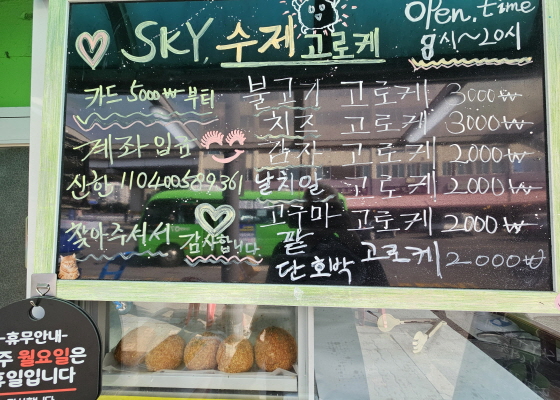 SKY. 수제 고로케
Open. time
8시~20시
카드 5000₩ 부터
계좌 입금
신한 110400569361
찾아주셔서 감사합니다.
불고기 고로케 3000₩
치즈 고로케 3000₩
감자 고로케 2000₩
날치알 고로케 2000₩
고구마 고로케 2000₩
팥
단호박 고로케 2000₩
-휴무안내-
주 월요일은
휴일입니다